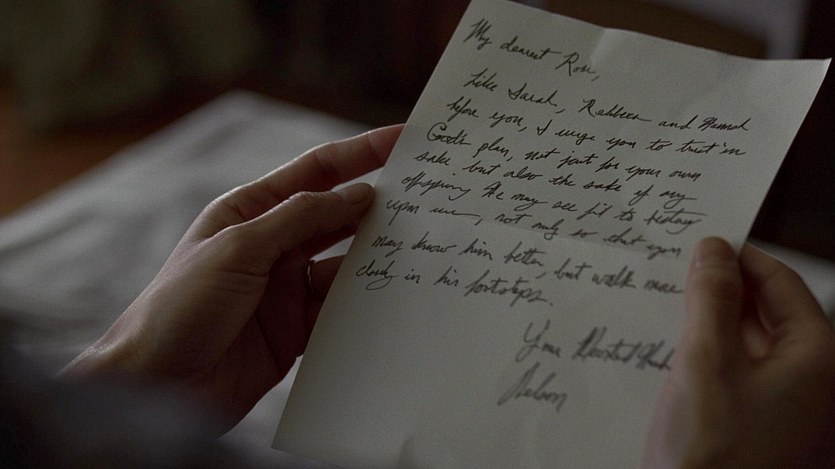 My dearest Rose,
Like Sarah, Rebbeca and Hannah
before you, I urge you to trust in
God's plan, not just for your own
sake but also the sake of any
offspring He may see fit to bestow
upon us, not only so that you
may know him better, but walk more
closely in his footsteps.
Your Devoted Husb
Nelson